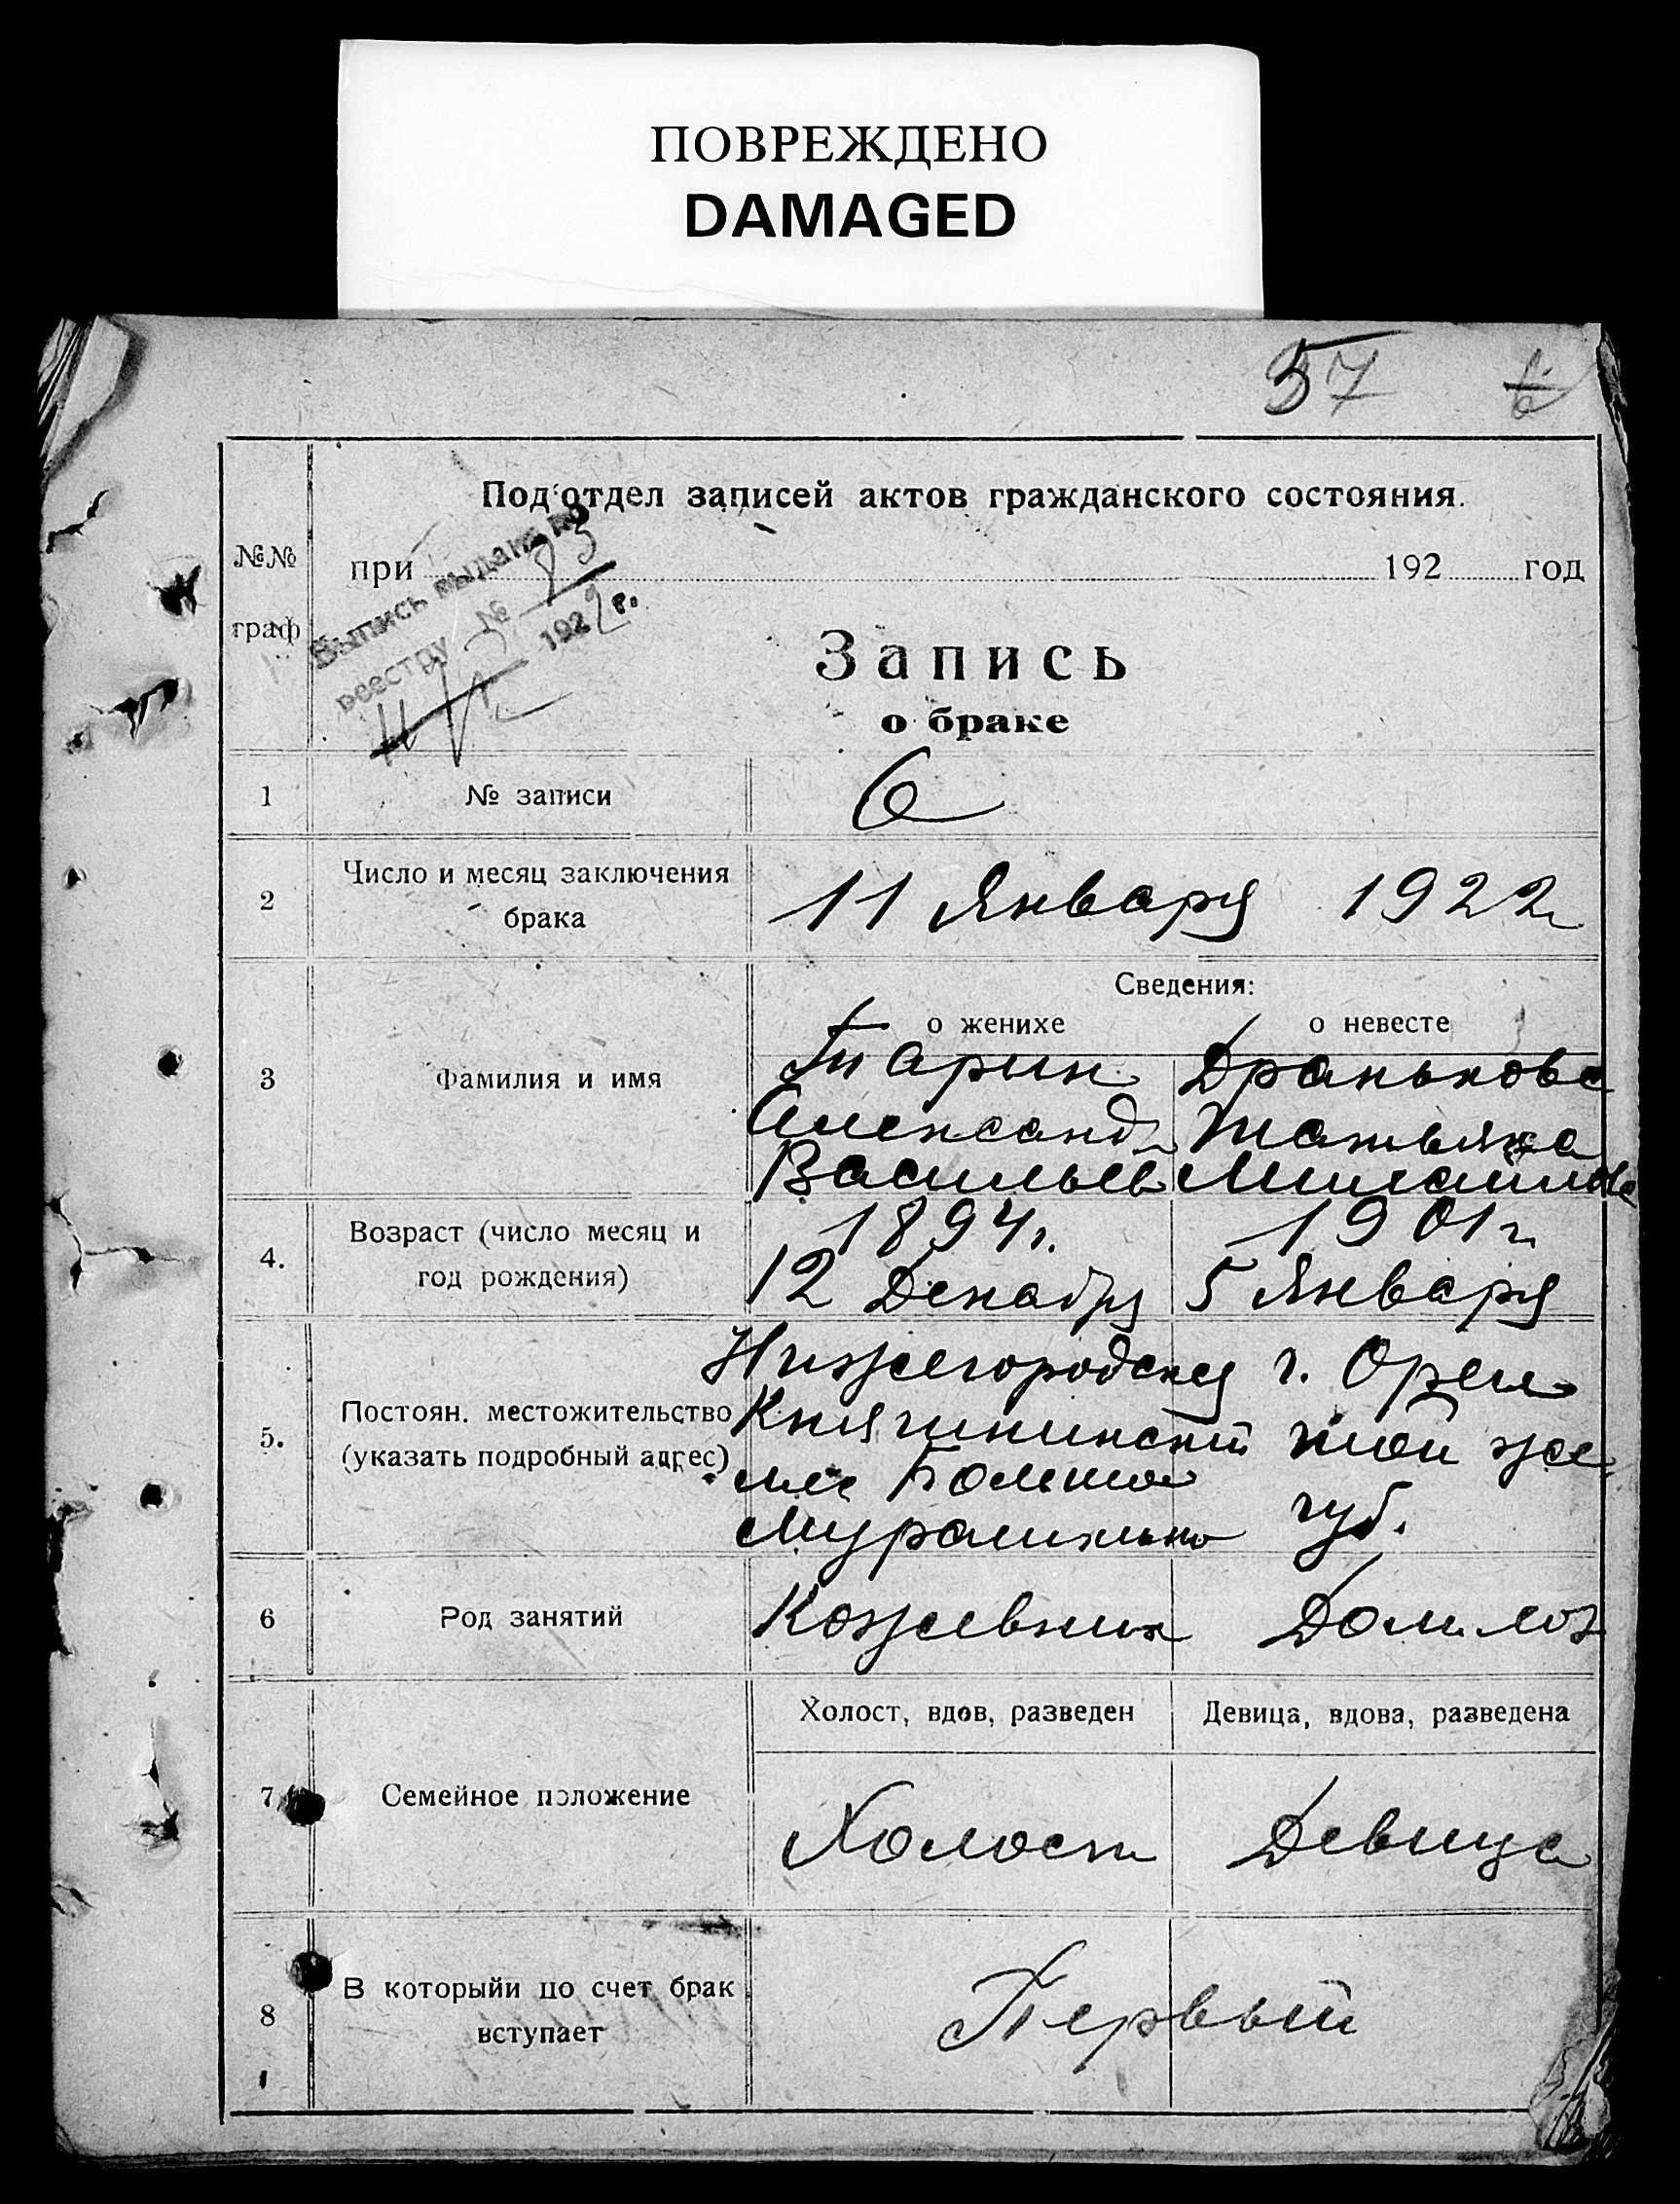 ПОВРЕЖДЕНО
DAMAGED
57
6
Под'отдел записей актов гражданского состояния.
№№
граф
при 192 год
Выпись выдана по
реестру № 83
1922 г.
Запись
о браке
1 № записи 6
2 Число и месяц заключения
брака
11 Января 1922
Сведения:
о женихе о невесте
3 Фамилия и имя
Тарин Дранькова
Александ Татьяна
Васильев Михайлов
4. Возраст (число месяц и
год рождения)
1894г. 1901г.
12 Декабря 5 Января
5. Постоян. местожительство
(указать подробный адрес)
Нижегородская г. Орел
Княгининский той же
Больше губ.
Мурашкино
6 Род занятий Кожевник Дом. хоз
Холост, вдов, разведен Девица, вдова, разведена
7 Семейное положение Холост Девица
8 В которыйи по счет брак
вступает
Первый